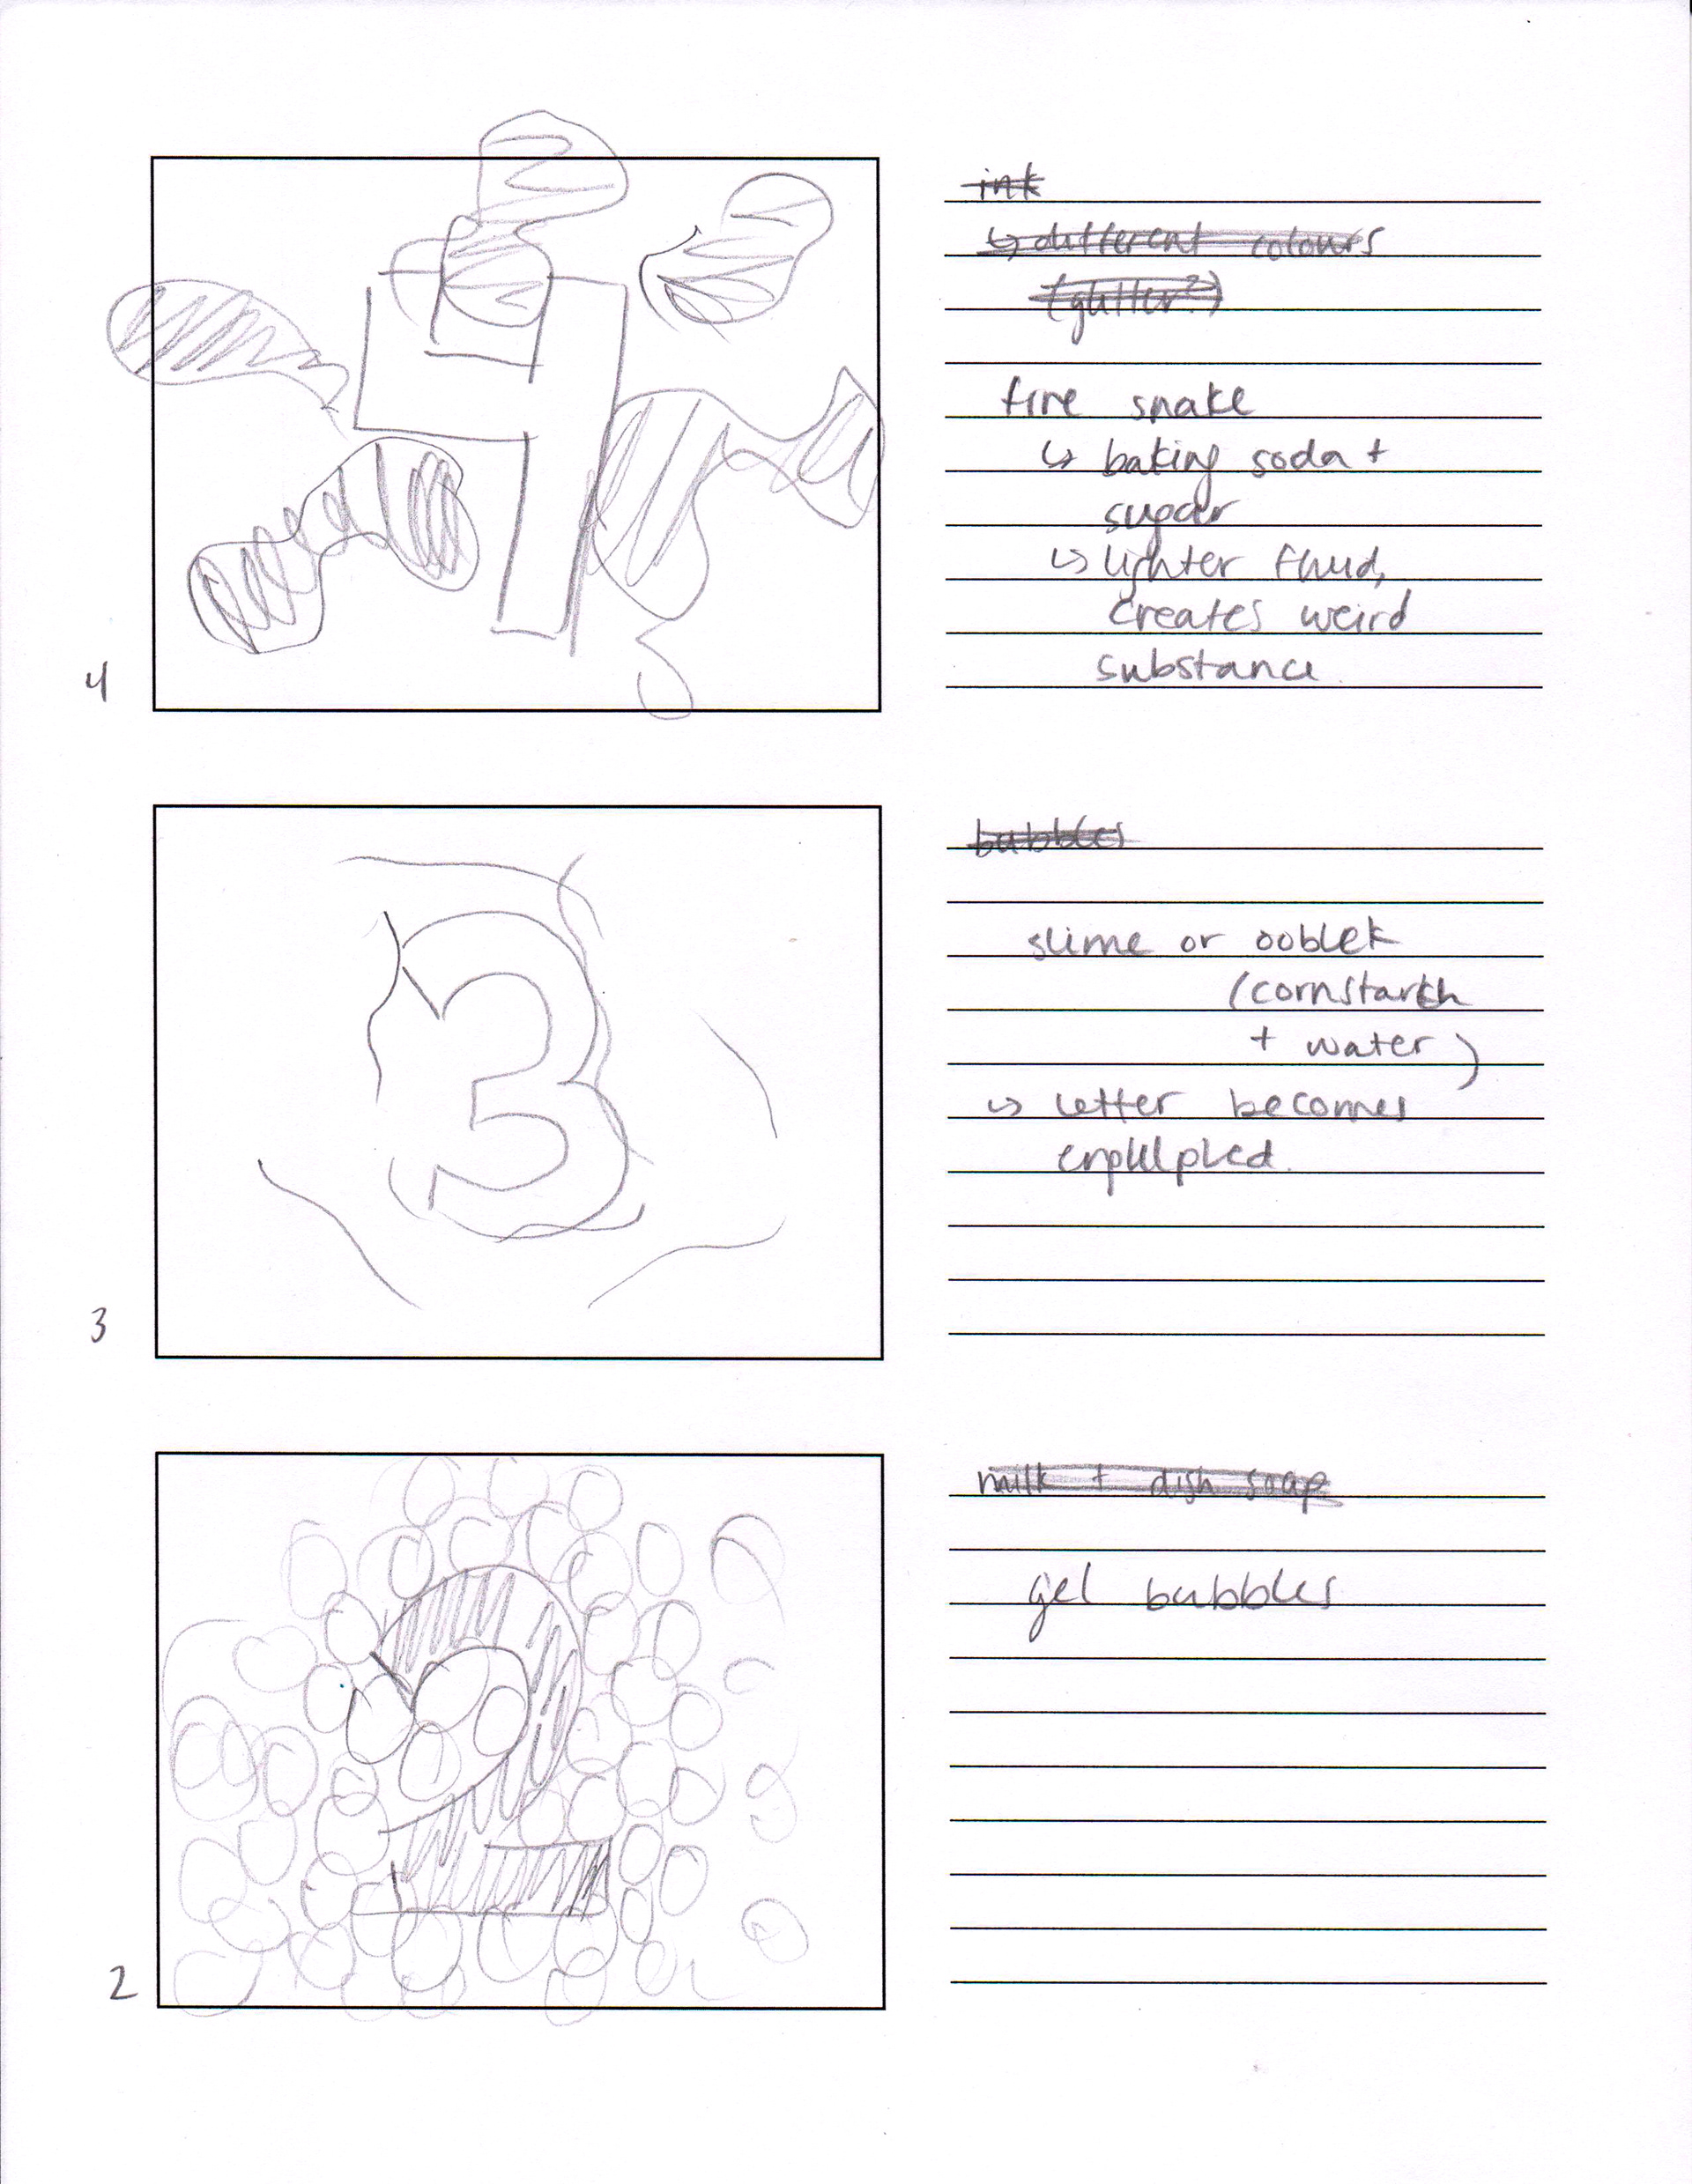 ink
↳ different colours
(glitter?)
fire snake
↳ baking soda +
sugar
↳ lighter fluid,
creates weird
substance.
4
3
bubbles
slime or ooblek
(cornstarch
+ water)
↳ letter becomes
engulged.
3
2
milk + dish soap
gel bubbles
2